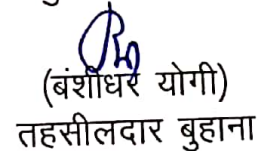 (बंशीधर योगी)
तहसीलदार बुहाना